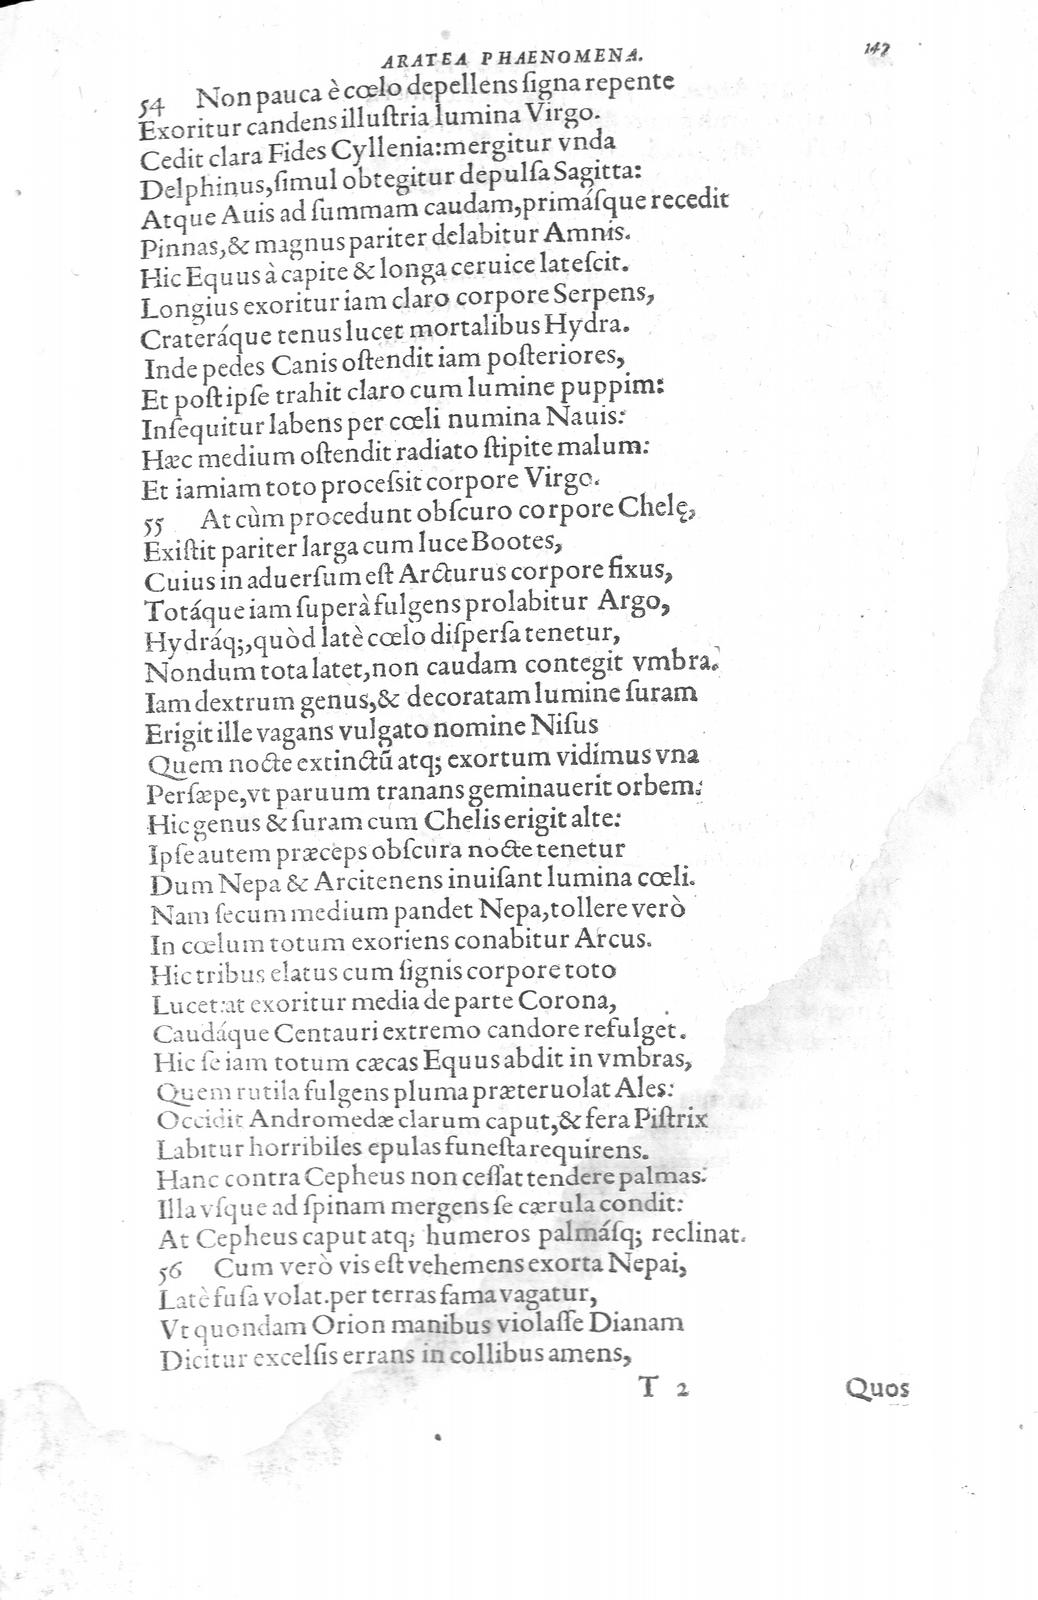 ARATEA PHAENOMENA. 147
54 Non pauca è cœlo depellens ſigna repente
Exoritur candens illuſtria lumina Virgo.
Cedit clara Fides Cyllenia: mergitur vnda
Delphinus, ſimul obtegitur depulſa Sagitta:
Atque Auis ad ſummam caudam, primáſque recedit
Pinnas, & magnus pariter delabitur Amnis.
Hic Equus à capite & longa ceruice lateſcit.
Longius exoritur iam claro corpore Serpens,
Crateráque tenus lucet mortalibus Hydra.
Inde pedes Canis oſtendit iam poſteriores,
Et poſt ipſe trahit claro cum lumine puppim:
Inſequitur labens per cœli numina Nauis:
Hæc medium oſtendit radiato ſtipite malum:
Et iamiam toto proceſsit corpore Virgo.
55 At cùm procedunt obſcuro corpore Chelę,
Exiſtit pariter larga cum luce Bootes,
Cuius in aduerſum eſt Arcturus corpore fixus,
Totáque iam ſuperà fulgens prolabitur Argo,
Hydráq;, quòd latè cœlo diſperſa tenetur,
Nondum tota latet, non caudam contegit vmbra.
Iam dextrum genus, & decoratam lumine ſuram
Erigit ille vagans vulgato nomine Niſus
Quem nocte extinctū atq; exortum vidimus vna
Perſæpe, vt paruum tranans geminauerit orbem:
Hic genus & ſuram cum Chelis erigit alte:
Ipſe autem præceps obſcura nocte tenetur
Dum Nepa & Arcitenens inuiſant lumina cœli.
Nam ſecum medium pandet Nepa, tollere verò
In cœlum totum exoriens conabitur Arcus.
Hic tribus elatus cum ſignis corpore toto
Lucet: at exoritur media de parte Corona,
Caudáque Centauri extremo candore refulget.
Hic ſe iam totum cæcas Equus abdit in vmbras,
Quem rutila fulgens pluma præteruolat Ales:
Occidit Andromedæ clarum caput, & fera Piſtrix
Labitur horribiles epulas funeſta requirens.
Hanc contra Cepheus non ceſſat tendere palmas:
Illa vſque ad ſpinam mergens ſe cærula condit:
At Cepheus caput atq; humeros palmáſq; reclinat.
56 Cum verò vis eſt vehemens exorta Nepai,
Latè fuſa volat. per terras fama vagatur,
Vt quondam Orion manibus violaſſe Dianam
Dicitur excelſis errans in collibus amens,
T 2 Quos